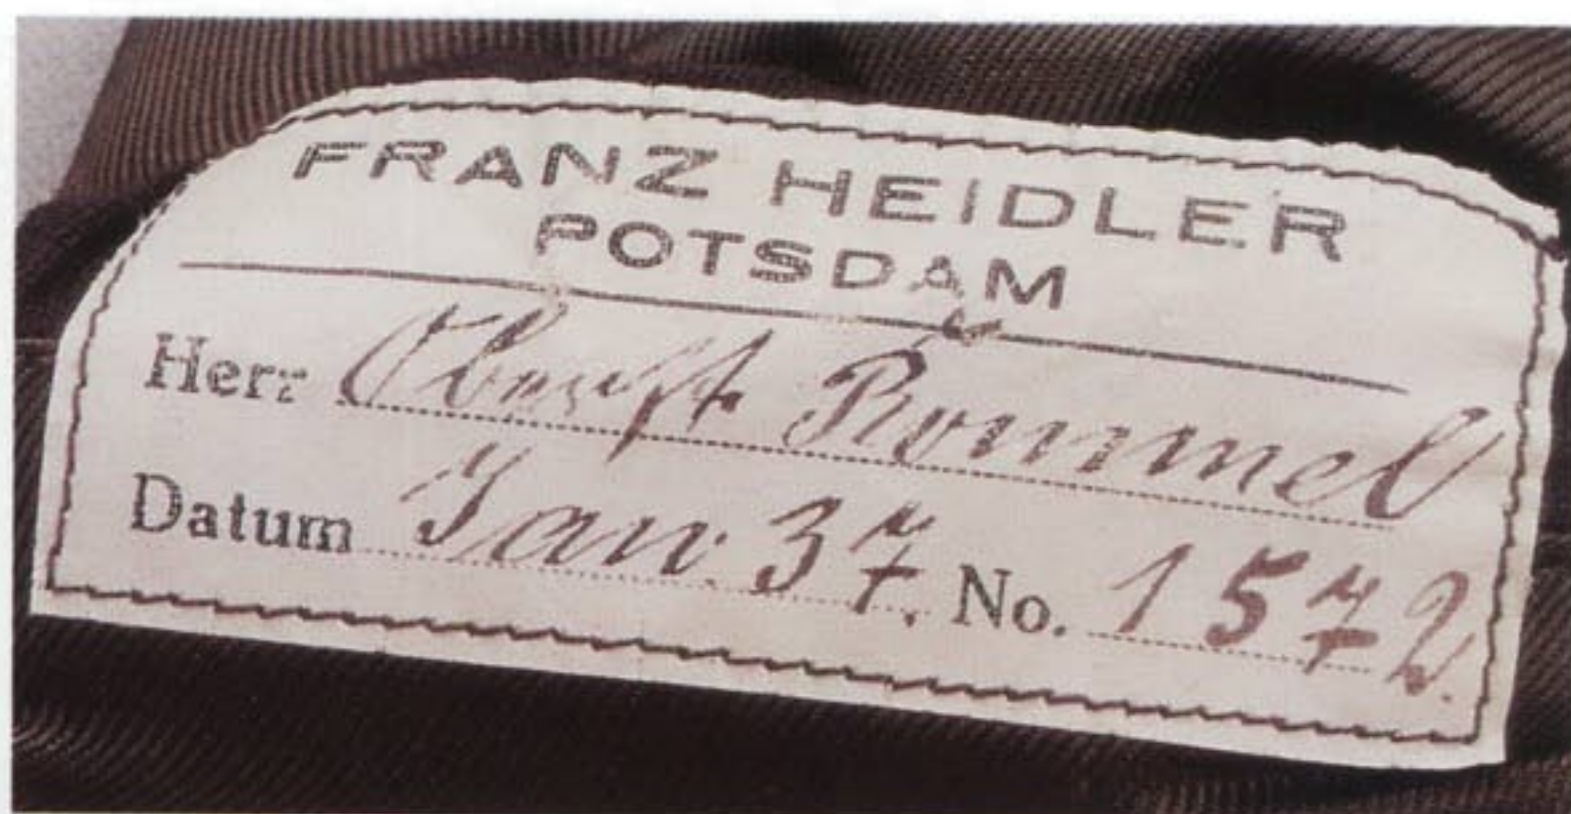 FRANZ HEIDLER
POTSDAM
Herr Oberst Rommel
Datum Jan. 37. No. 1572.